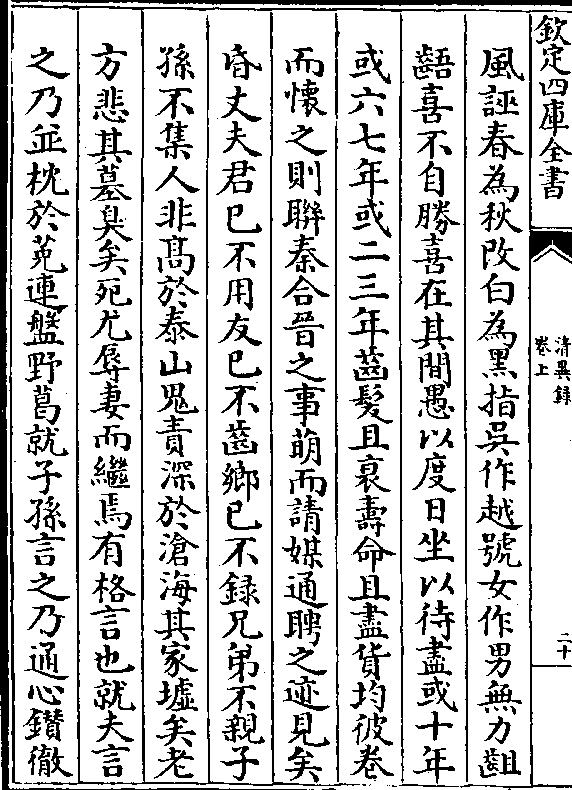 欽定四庫全書
清異録
卷上
二十
風誣春為秋改白為黑指吳作越號女作男無力齟
齬喜不自勝喜在其間愚以度日坐以待盡或十年
或六七年或二三年齒髮且衰壽命且盡貨均彼卷
而懷之則聮秦合晉之事萌而請媒通聘之迹見矣
昏丈夫君已不用友已不齒鄉已不録兄弟不親子
孫不集人非髙於泰山鬼責深於滄海其家墟矣老
方悲其墓臭矣死尤辱妻而繼焉有格言也就夫言
之乃並枕於菟連盤野葛就子孫言之乃通心鑚徹